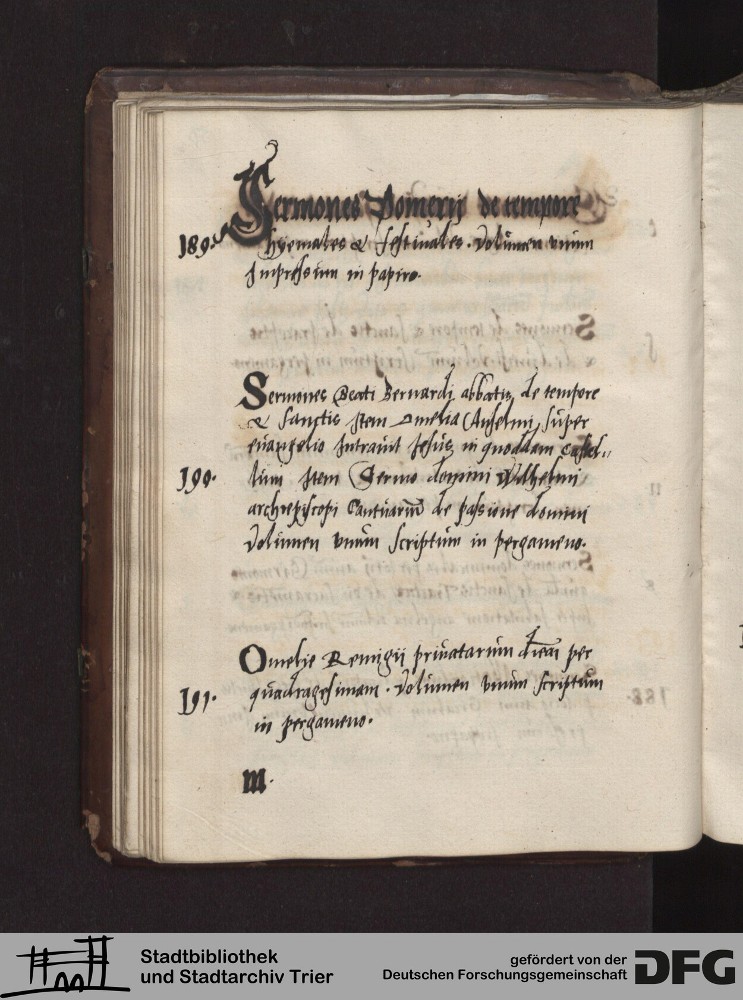 Sermones Pomerij de tempore
189. hyemales & festiuales. Volumen vnum
Impressum in papiro.
Sermones Beati Bernardi abbatis de tempore
& Sanctis Item Omelia Anselmi super
euangelio Intrauit Jesus in quoddam Castel-,,
190. lum Item Sermo domini Wilhelmi
archiepiscopi Cantuarium de passione domini
Volumen vnum scriptum in pergameno.
Omelie Remigij priuatarum dierum per
191. quadragesimam. Volumen vnum scriptum
in pergameno.
m.
188.
Stadtbibliothek
und Stadtarchiv Trier
gefördert von der
Deutschen Forschungsgemeinschaft
DFG